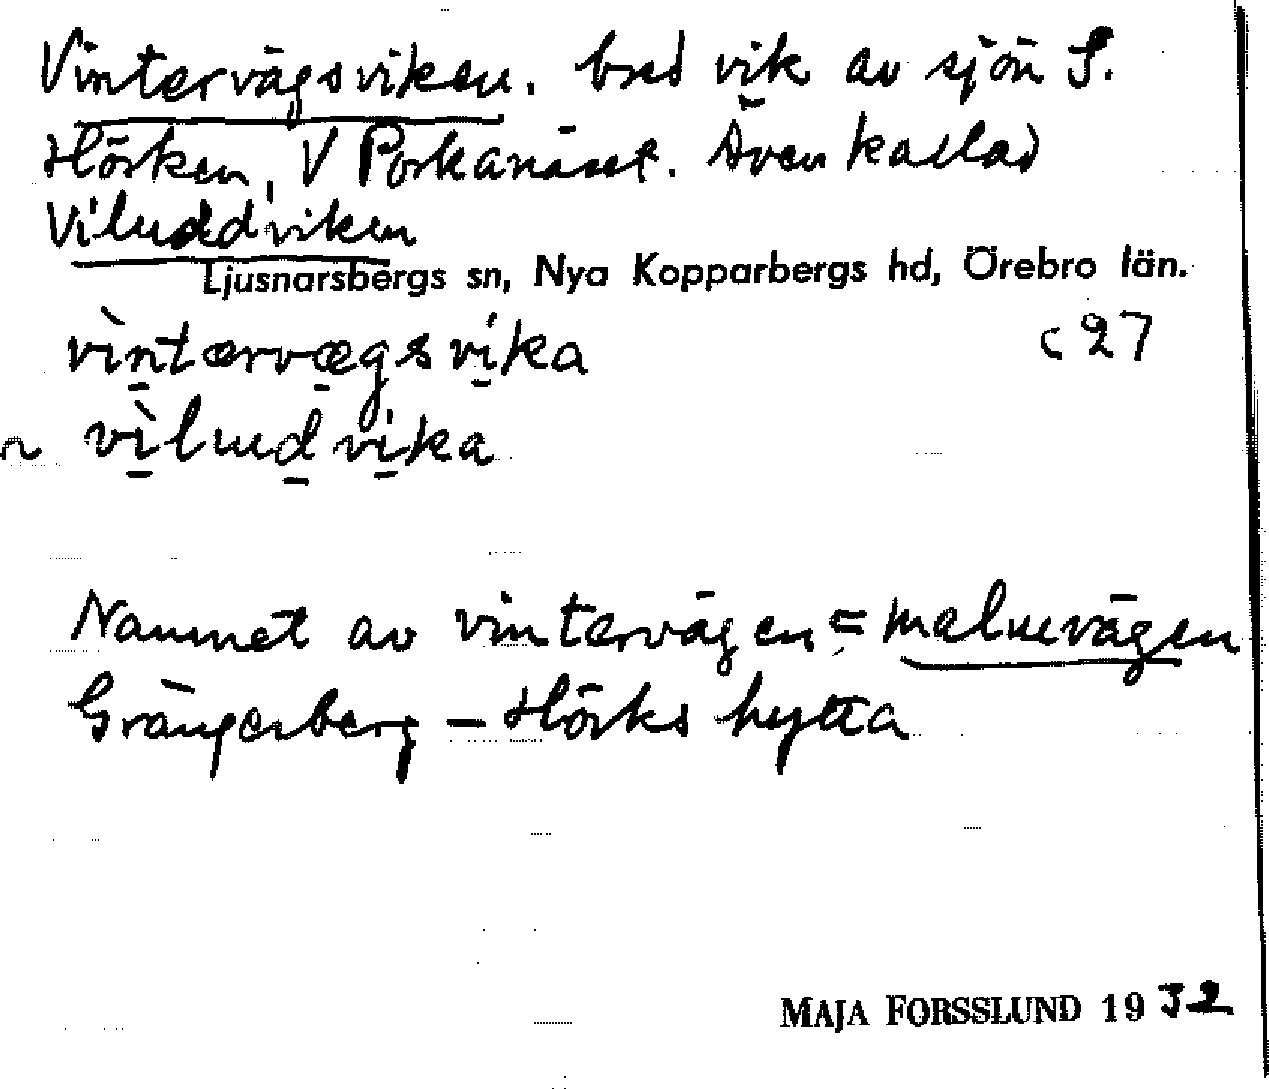 Vintervägsviken. bred vik av sjön S.
Hörken, V Porkanäset. Även kallad
Viluddviken
Ljusnarsbergs sn, Nya Kopparbergs hd, Örebro län.
vìntærvægsvíka
c 27
vìludvíka
Namnet av vintervägen = malmvägen
Grängesberg – Hörks hytta
MAJA FORSSLUND 1932